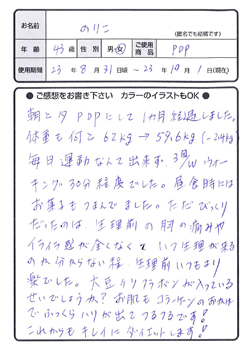 お名前 のりこ
(匿名でも結構です)
年齢 43歳 性別 男・女 ご使用商品 PDP
使用期間 23年8月31日頃～23年10月1日(現在)
●ご感想をお書き下さい カラーのイラストもOK●
朝と夕PDPにして1ヵ月経過しました。
体重も何と62kg→59.6kg(-2.4kg)
毎日運動なんて出来ず、3回/Wウォー
キング30分程度でした。昼食時には
お菓子もつまんでました。ただびっくり
だったのは、生理前の胸の痛みや
イライラ感が全くなく、いつ生理が来る
のか分からない程、生理前いつもより
楽でした。大豆イソフラボンが入っている
せいでしょうか？お肌もコラーゲンのおかげ
でふっくらハリが出てつるつるです！
これからもキレイにダイエットします！